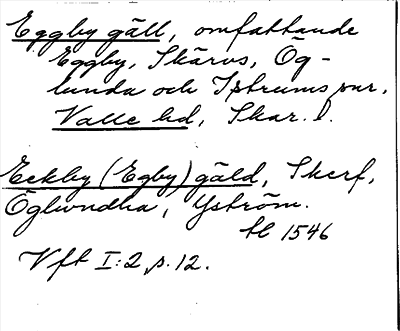 Eggby gäll, omfattande
Eggby, Skärvs, Ög-
lunda och Istrums snr.
Valle hd, Skar. l.
Eckby (Egby) gäld, Skerf,
Öglwndha, Yström.
tl 1546
Vft I:2, s. 12.